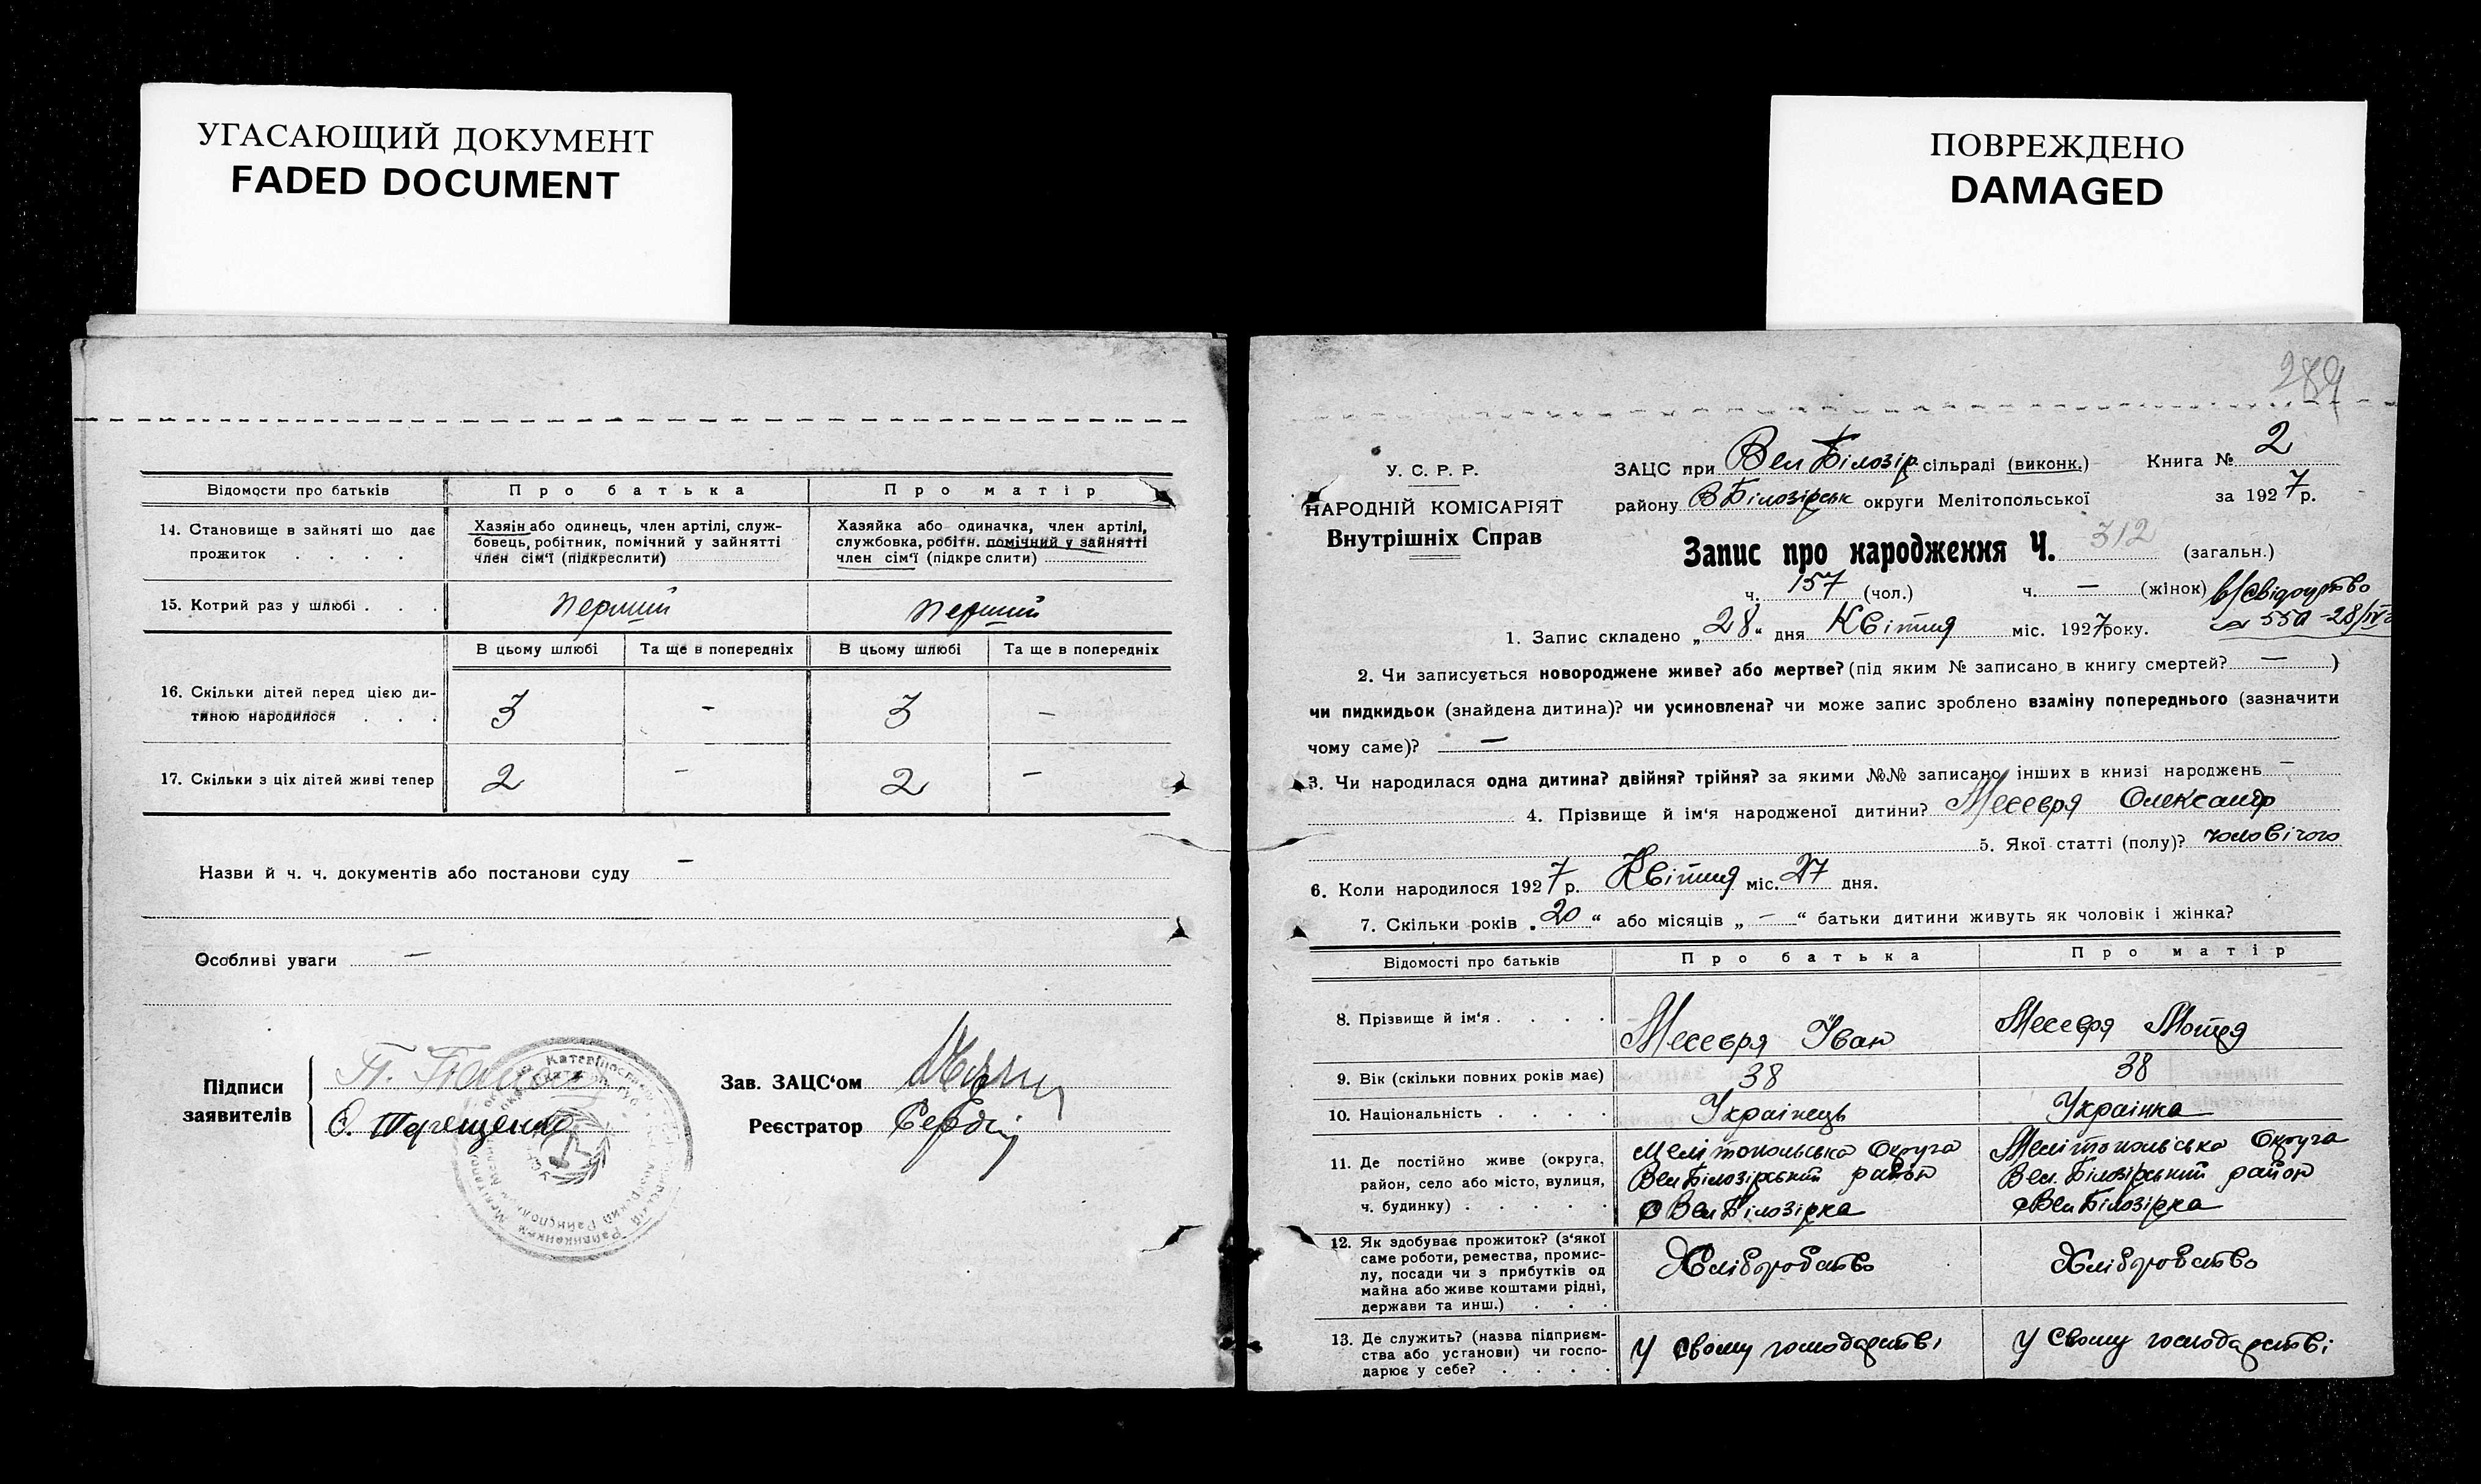 УГАСАЮЩИЙ ДОКУМЕНТ
FADED DOCUMENT
ПОВРЕЖДЕНО
DAMAGED
Відомости про батьків Про батька Про матір
14. Становище в зайняті що дає прожиток . . . .
Хазяін або одинець, член артілі, служ-
бовець, робітник, помічний у зайнятті
член сім'ї (підкреслити)
Хазяйка або одиначка, член артілі,
службовка, робітн. помічний у зайнятті
член сім'ї (підкреслити)
15. Котрий раз у шлюбі . . . перший перший
В цьому шлюбі Та ще в попередніх В цьому шлюбі Та ще в попередніх
16. Скільки дітей перед цією ди-
тиною народилося . . . 3 - 3 -
17. Скільки з ціх дітей живі тепер 2 - 2 -
Назви й ч. ч. документів або постанови суду -
Особливі уваги -
Підписи
заявителів
О. Терещенко
Зав. ЗАЦС'ом
Реєстратор Сердій
289
У. С. Р. Р.
НАРОДНІЙ КОМІСАРІЯТ
Внутрішніх Справ
ЗАЦС при Вел Білозір сільраді (виконк.) Книга № 2
району В Білозірськ округи Мелітопольської за 1927 р.
Запис про народження Ч. 312 (загальн.)
ч. 157 (чол.) ч. — (жінок) в/свідоцтво
550 - 28/IV
1. Запис складено „28" дня Квітня міс. 1927 року.
2. Чи записується новороджене живе? або мертве? (під яким № записано в книгу смертей? — )
чи пидкидьок (знайдена дитина)? чи усиновлена? чи може запис зроблено взаміну попереднього (зазначити
чому саме)? —
3. Чи народилася одна дитина? двійня? трійня? за якими №№ записано інших в книзі народжень —
4. Прізвище й ім'я народженої дитини? Месевря Олександр
5. Якої статті (полу)? чоловічого
6. Коли народилося 1927 р. Квітня міс. 27 дня.
7. Скільки років „20" або місяців „—" батьки дитини живуть як чоловік і жінка?
Відомості про батьків Про батька Про матір
8. Прізвище й ім'я . . . . Месевря Іван Месевря Мотря
9. Вік (скільки повних років має) 38 38
10. Національність . . . . Українець Українка
11. Де постійно живе (округа,
район, село або місто, вулиця,
ч. будинку) . . . . .
Мелітопольська Округа
Вел Білозірський район
с Вел Білозірка
Мелітопольська Округа
Вел. Білозірський район
с Вел Білозірка
12. Як здобуває прожиток? (з'якої
саме роботи, ремества, промис-
лу, посади чи з прибутків од
майна або живе коштами рідні,
держави та инш.) . . .
Хліборобство Хліборобство
13. Де служить? (назва підприєм-
ства або установи) чи госпо-
дарює у себе? . . . .
У свому господарстві У свому господарстві